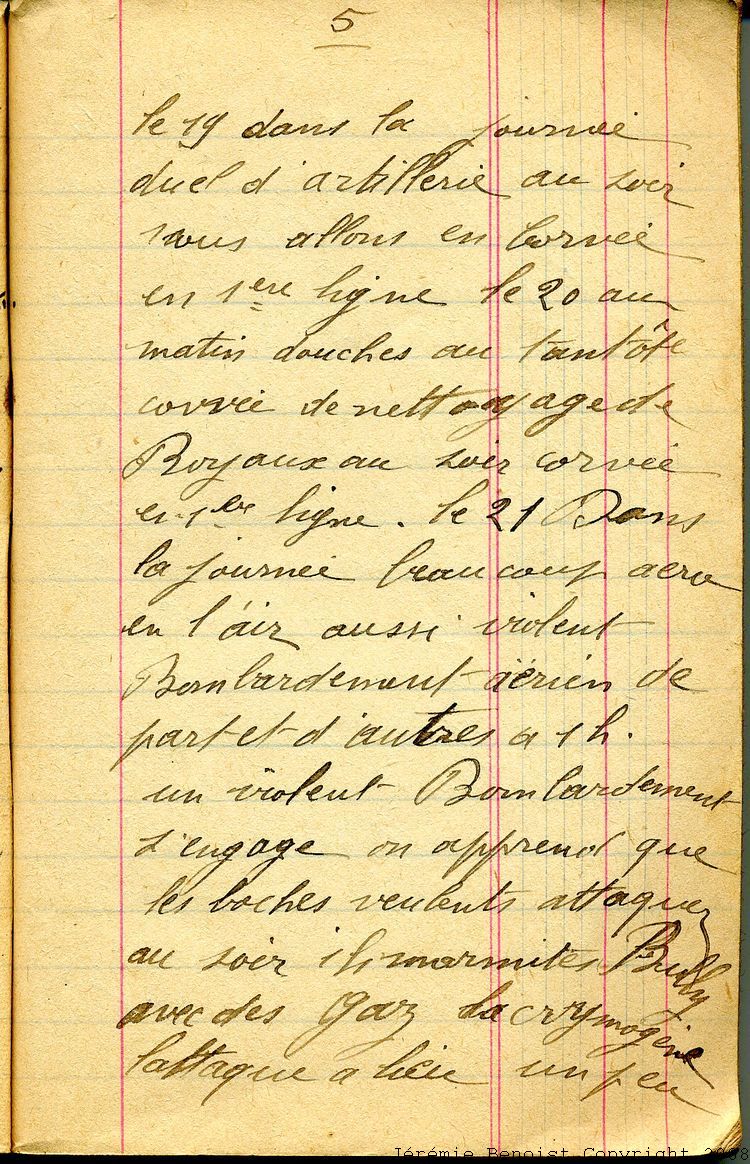 5
le 19 dans la journée
duel d'artillerie au soir
nous allons en Corvée
en 1ere ligne le 20 au
matin douches au tantôt
corvée de nettoyage de
Boyaux au soir corvée
en 1ere ligne. le 21 Dans
la journée beaucoup aero
en l'air aussi violent
Bombardement aérien de
part et d'autres a 1 h.
un violent Bombardement
s'engage on apprend que
les boches veulents attaquer
au soir ils marmites Bully
avec des Gaz lacrymogène
l'attaque a lieu un peu
Jérémie Benoist Copyright 2008